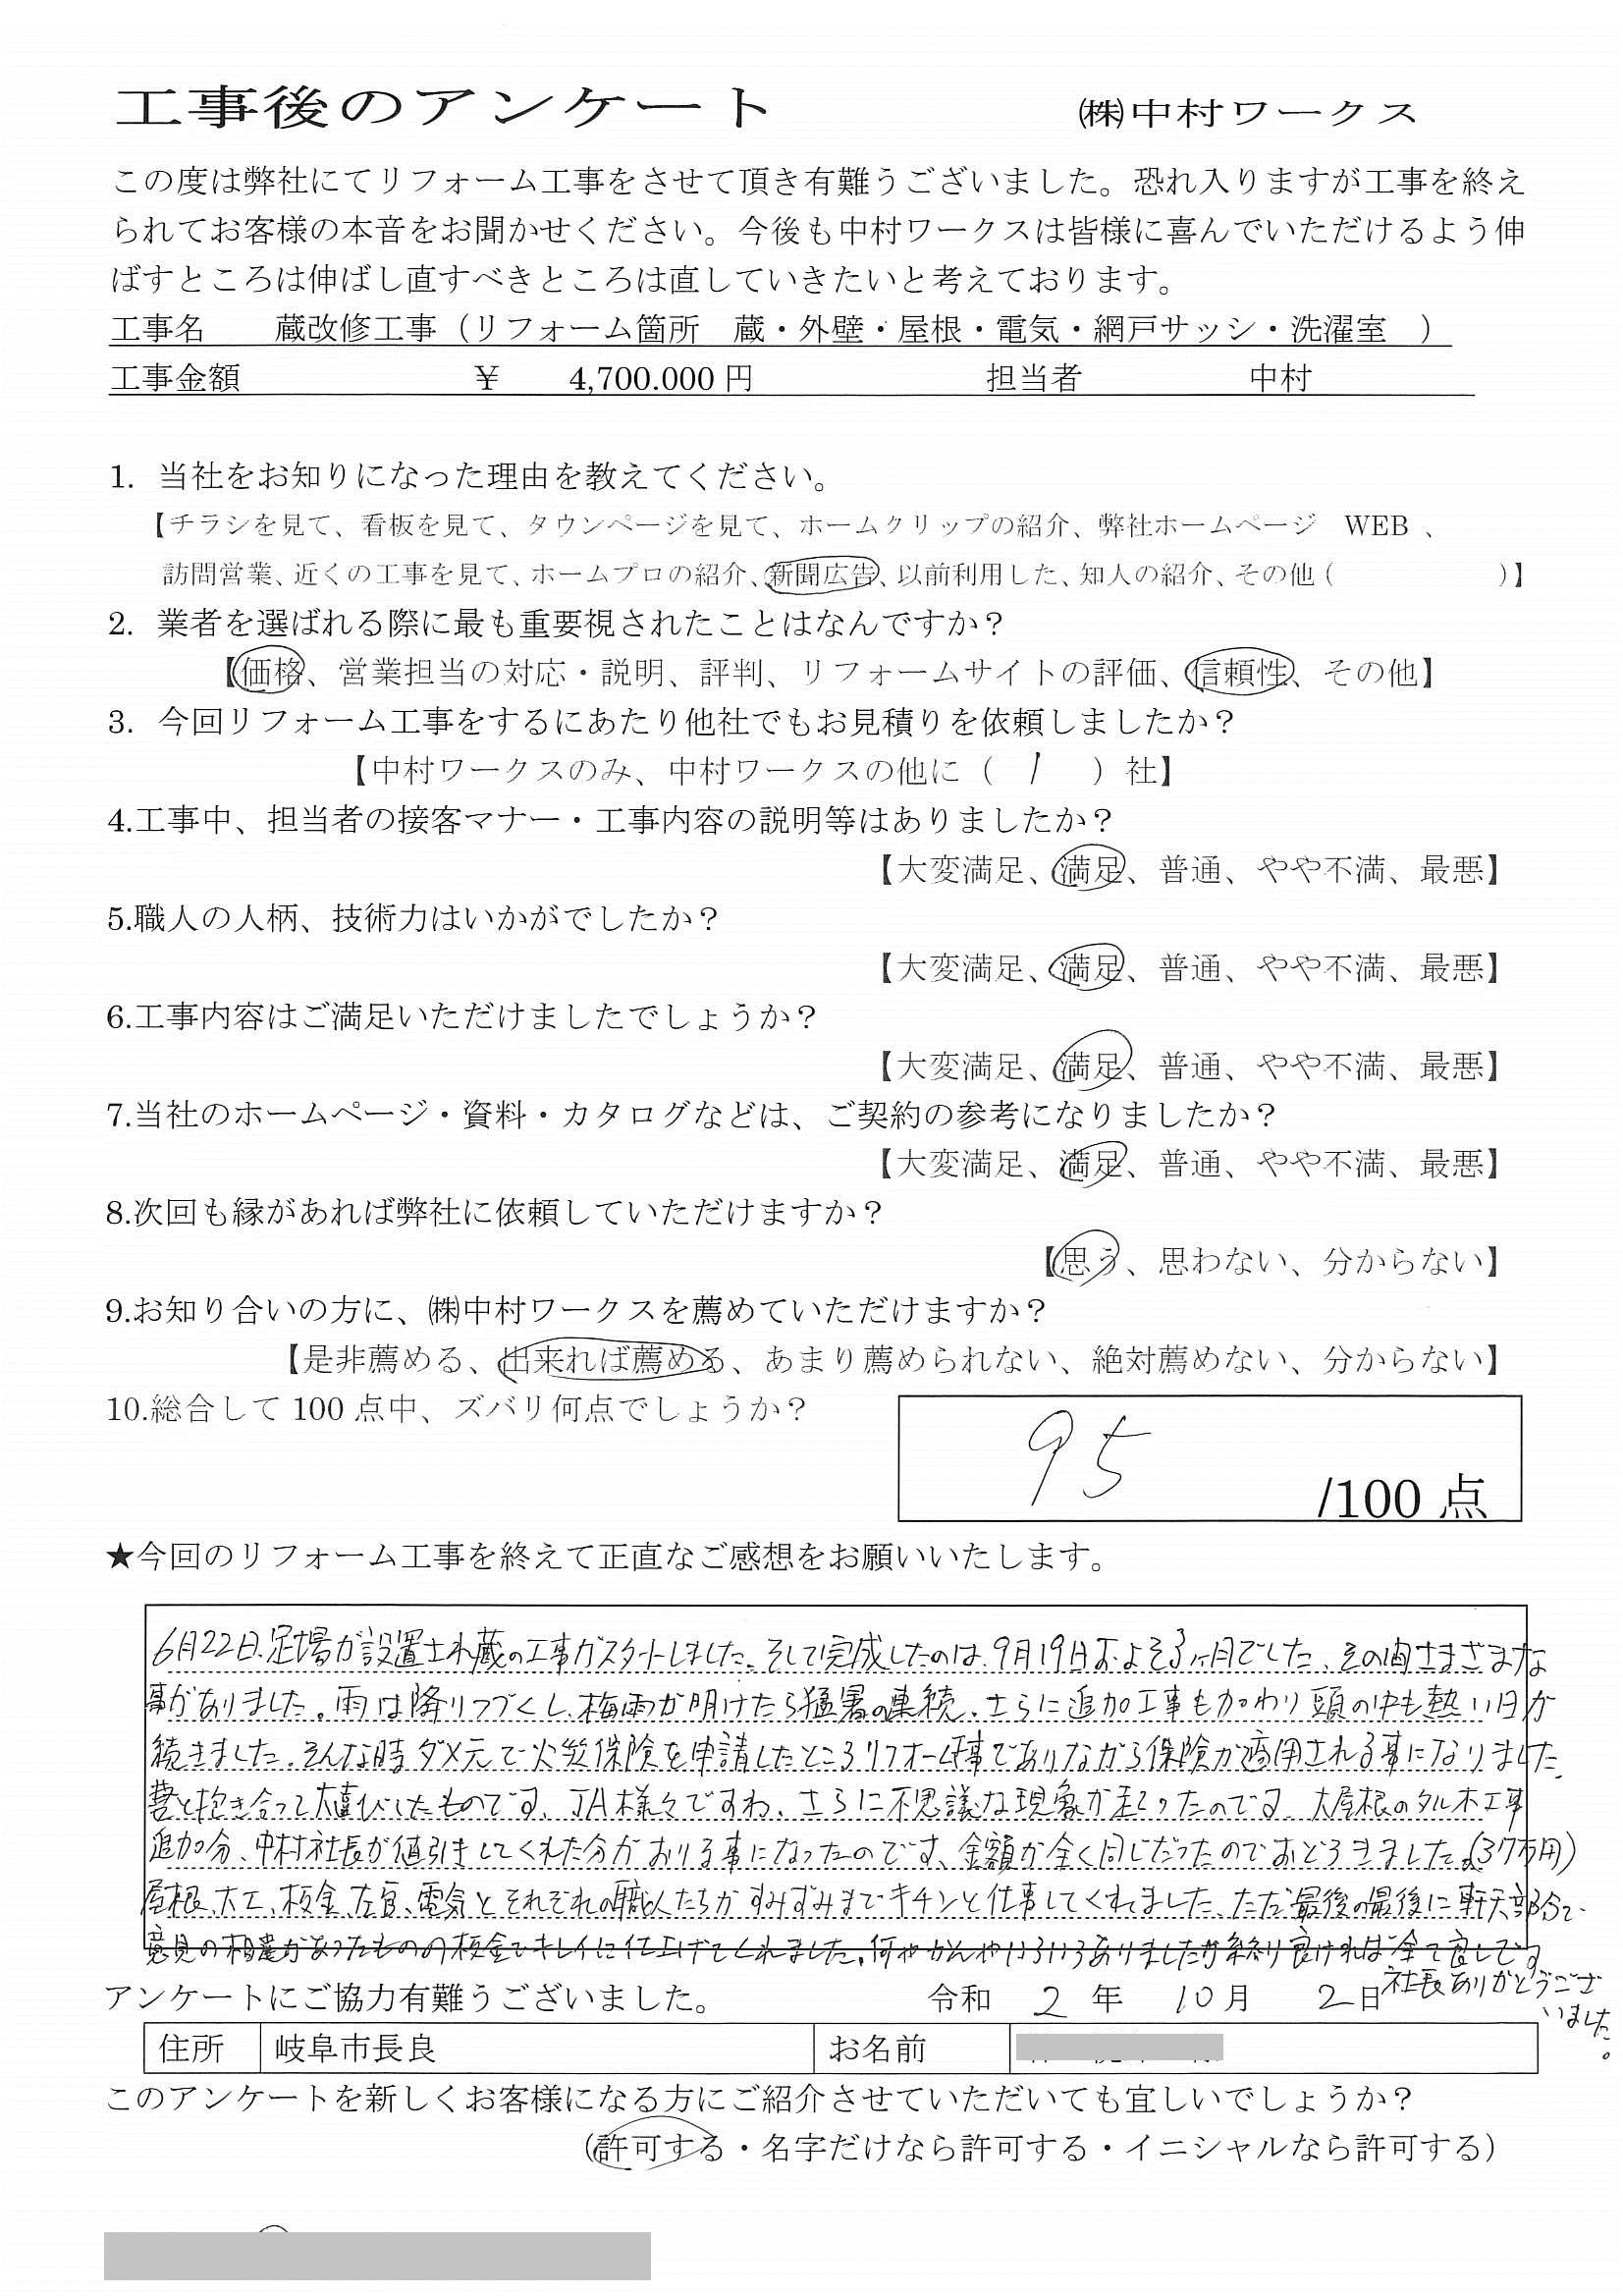 工事後のアンケート　㈱中村ワークス
この度は弊社にてリフォーム工事をさせて頂き有難うございました。恐れ入りますが工事を終え
られてお客様の本音をお聞かせください。今後も中村ワークスは皆様に喜んでいただけるよう伸
ばすところは伸ばし直すべきところは直していきたいと考えております。
工事名　蔵改修工事（リフォーム箇所　蔵・外壁・屋根・電気・網戸サッシ・洗濯室　）
工事金額　￥　4,700.000 円　担当者　中村
1. 当社をお知りになった理由を教えてください。
【チラシを見て、看板を見て、タウンページを見て、ホームクリップの紹介、弊社ホームページ　WEB 、
訪問営業、近くの工事を見て、ホームプロの紹介、新聞広告、以前利用した、知人の紹介、その他（　　　）】
2. 業者を選ばれる際に最も重要視されたことはなんですか？
【価格、営業担当の対応・説明、評判、リフォームサイトの評価、信頼性、その他】
3. 今回リフォーム工事をするにあたり他社でもお見積りを依頼しましたか？
【中村ワークスのみ、中村ワークスの他に（　1　）社】
4.工事中、担当者の接客マナー・工事内容の説明等はありましたか？
【大変満足、満足、普通、やや不満、最悪】
5.職人の人柄、技術力はいかがでしたか？
【大変満足、満足、普通、やや不満、最悪】
6.工事内容はご満足いただけましたでしょうか？
【大変満足、満足、普通、やや不満、最悪】
7.当社のホームページ・資料・カタログなどは、ご契約の参考になりましたか？
【大変満足、満足、普通、やや不満、最悪】
8.次回も縁があれば弊社に依頼していただけますか？
【思う、思わない、分からない】
9.お知り合いの方に、㈱中村ワークスを薦めていただけますか？
【是非薦める、出来れば薦める、あまり薦められない、絶対薦めない、分からない】
10.総合して 100 点中、ズバリ何点でしょうか？
95 /100 点
★今回のリフォーム工事を終えて正直なご感想をお願いいたします。
6月22日、足場が設置され蔵の工事がスタートしました。そして完成したのは、9月19日およそ3ヶ月でした、その間さまざまな
事がありました。雨は降りつづくし、梅雨が明けたら猛暑の連続、さらに追加工事も加わり頭の中も熱い日が
続きました。そんな時ダメ元で火災保険を申請したところリフォーム工事でありながら保険が適用される事になりました。
妻と抱き合って大喜びしたものです、JA様々ですね、さらに不思議な現象が起こったのです、大屋根のタル木工事
追加分、中村社長が値引きしてくれた分がおりる事になったのです、金額が全く同じだったのでおどろきました。(37万円)
屋根、大工、板金、左官、電気とそれぞれの職人たちがすみずみまでキチンと仕事してくれました、ただ最後の最後に軒天部分で、
意見の相違があったものの板金でキレイに仕上げてくれました。何やかんやいろいろありましたが終り良ければ全て良しです
社長ありがとうござ
いました。
アンケートにご協力有難うございました。　令和　2　年　10月　2日
住所　岐阜市長良　お名前
このアンケートを新しくお客様になる方にご紹介させていただいても宜しいでしょうか？
(許可する・名字だけなら許可する・イニシャルなら許可する)